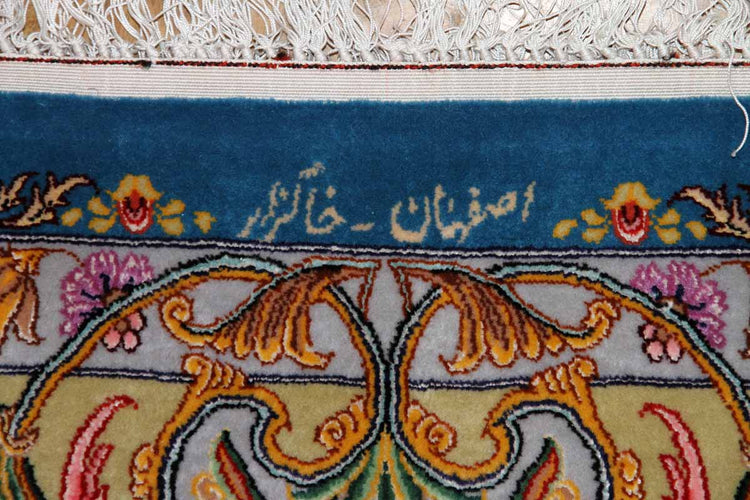 اصفهان - خاکزار